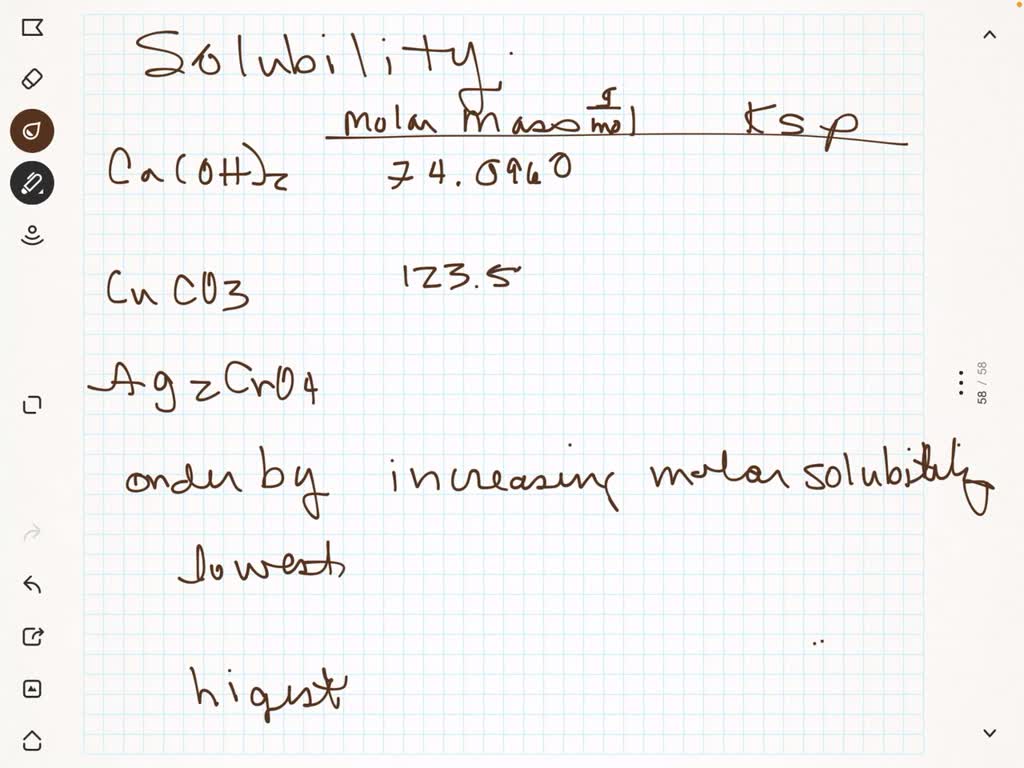 Solubility.
molar mass g/mol Ksp
Ca(OH)2 74.0960
CuCO3 123.5
Ag2CrO4
order by increasing molar solubility
lowest
higest
58 / 58